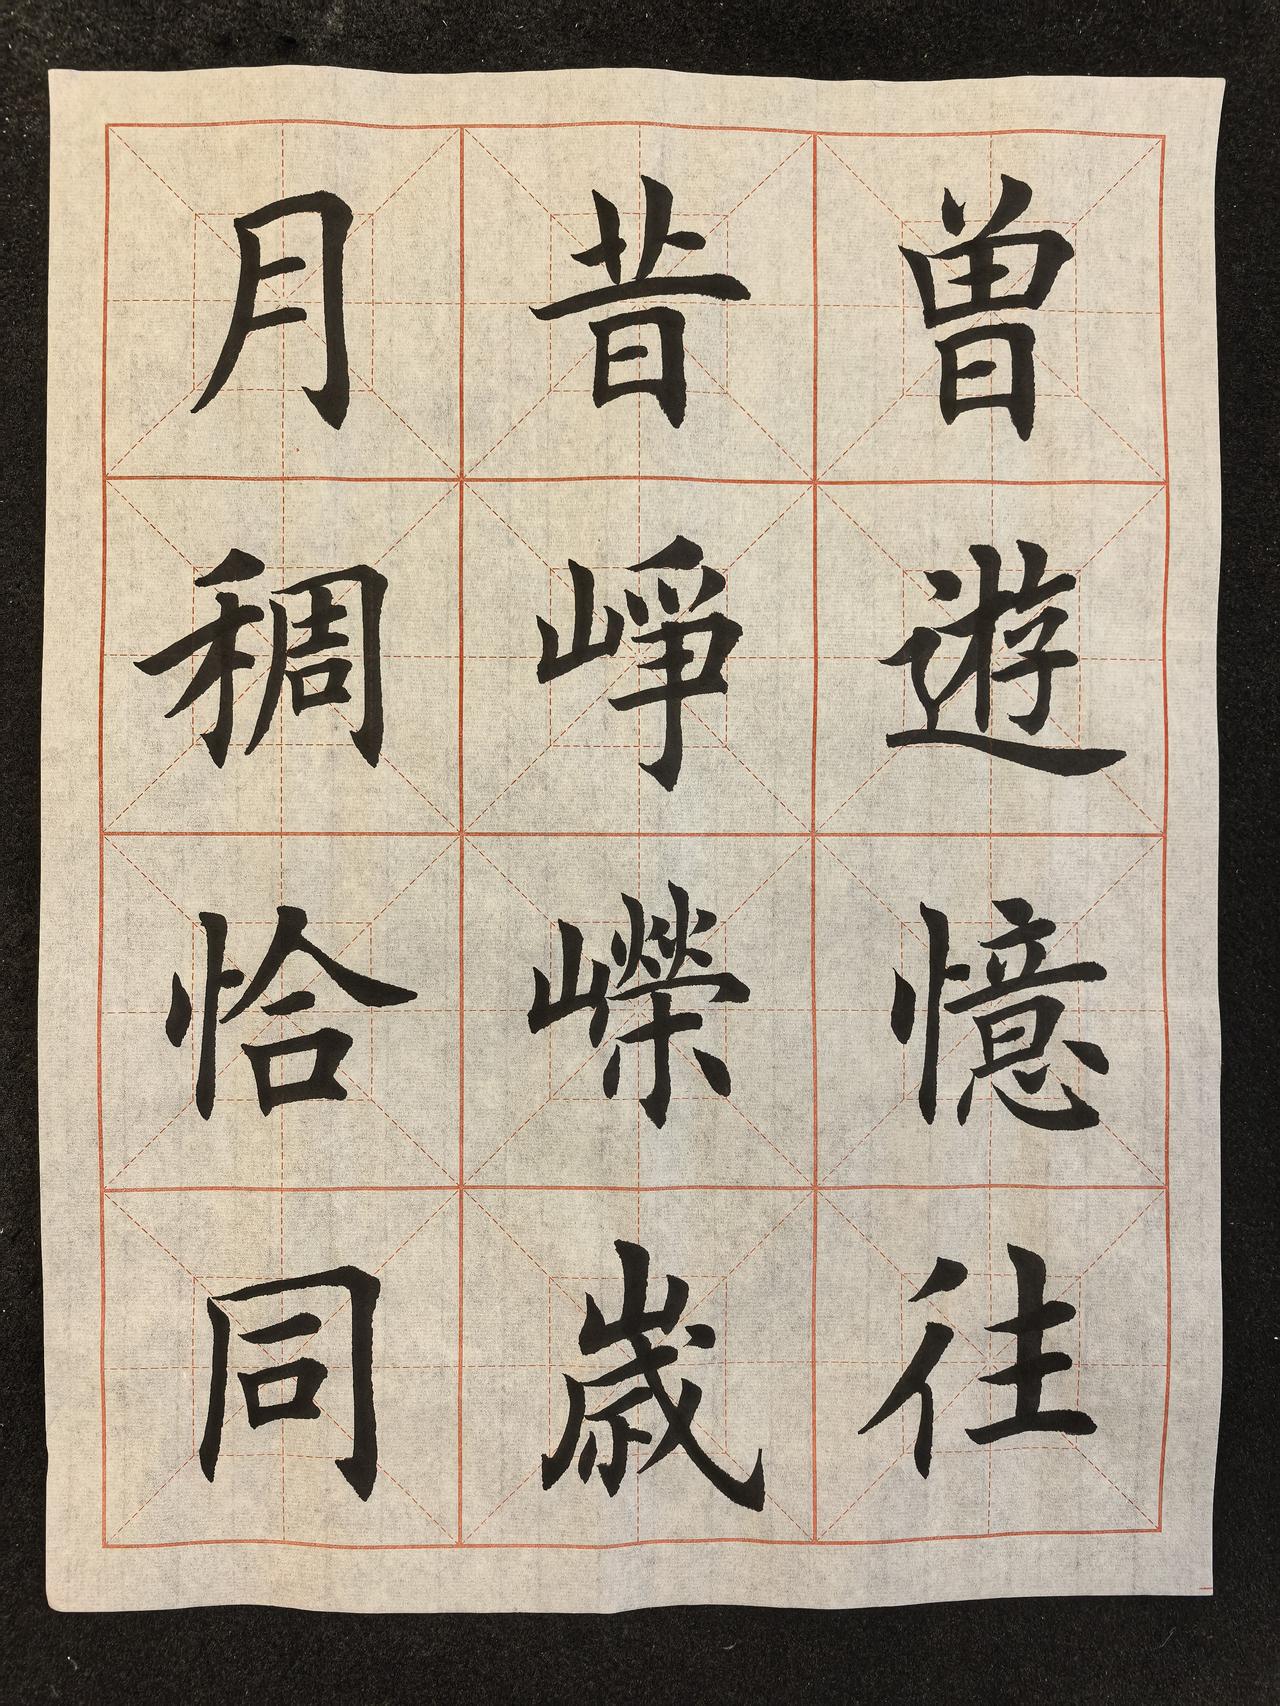 曽遊憶往
昔崢嶸歳
月稠恰同